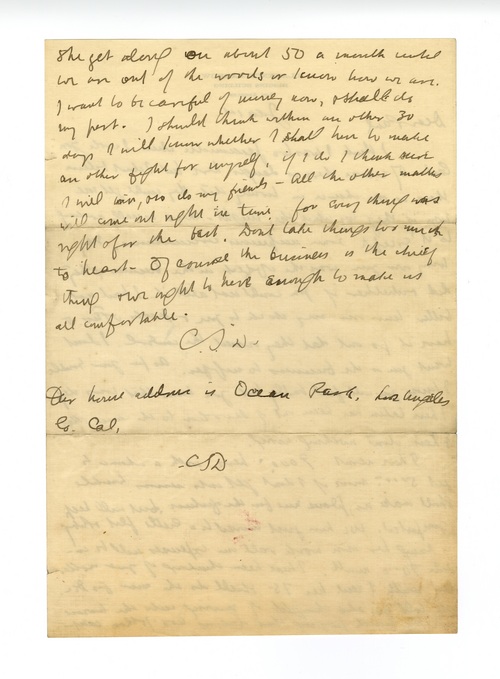 She get along on about 50 a month until
we are out of the woods or know how we are.
I want to be careful of money now, & shall do
my part. I should think within an other 30
days I will know whether I shall have to make
an other fight for myself, if I do I think sure
I will win, so do my friends - All the other matters
will come out right in time for every thing was
right & for the best. Dont take things too much
to heart - Of course the business is the chief
thing & we ought to have enough to make us
all comfortable.
C.S.D.
Our house address is Ocean Park, Los Angeles
Co. Cal,
- CSD